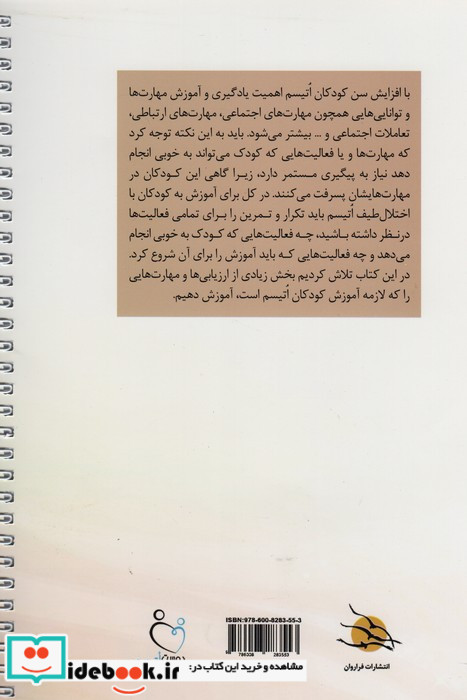 با افزایش سن کودکان اُتیسم اهمیت یادگیری و آموزش مهارت‌ها
و توانایی‌هایی همچون مهارت‌های اجتماعی، مهارت‌های ارتباطی،
تعاملات اجتماعی و ... بیشتر می‌شود. باید به این نکته توجه کرد
که مهارت‌ها و یا فعالیت‌هایی که کودک می‌تواند به خوبی انجام
دهد نیاز به پیگیری مستمر دارد، زیـرا گاهی این کـودکان در
مهارت‌هایشان پسرفت می‌کنند. در کل برای آموزش به کودکان با
اختلال‌طیف اُتیسم باید تکرار و تمـرین را بـرای تمامی فعالیت‌ها
درنظر داشته باشید، چـه فعالیت‌هایی که کودک به خوبی انجام
می‌دهد و چه فعالیت‌هایی کـه باید آموزش را برای آن شروع کرد.
در این کتاب تلاش کردیم بخش زیادی از ارزیابی‌ها و مهارت‌هایی
را که لازمه آموزش کودکان اُتیسم است، آموزش دهیم.
ISBN:978-600-8283-55-3
انتشارات فراروان
مشاهده و خرید این کتاب در:
idebook.ir